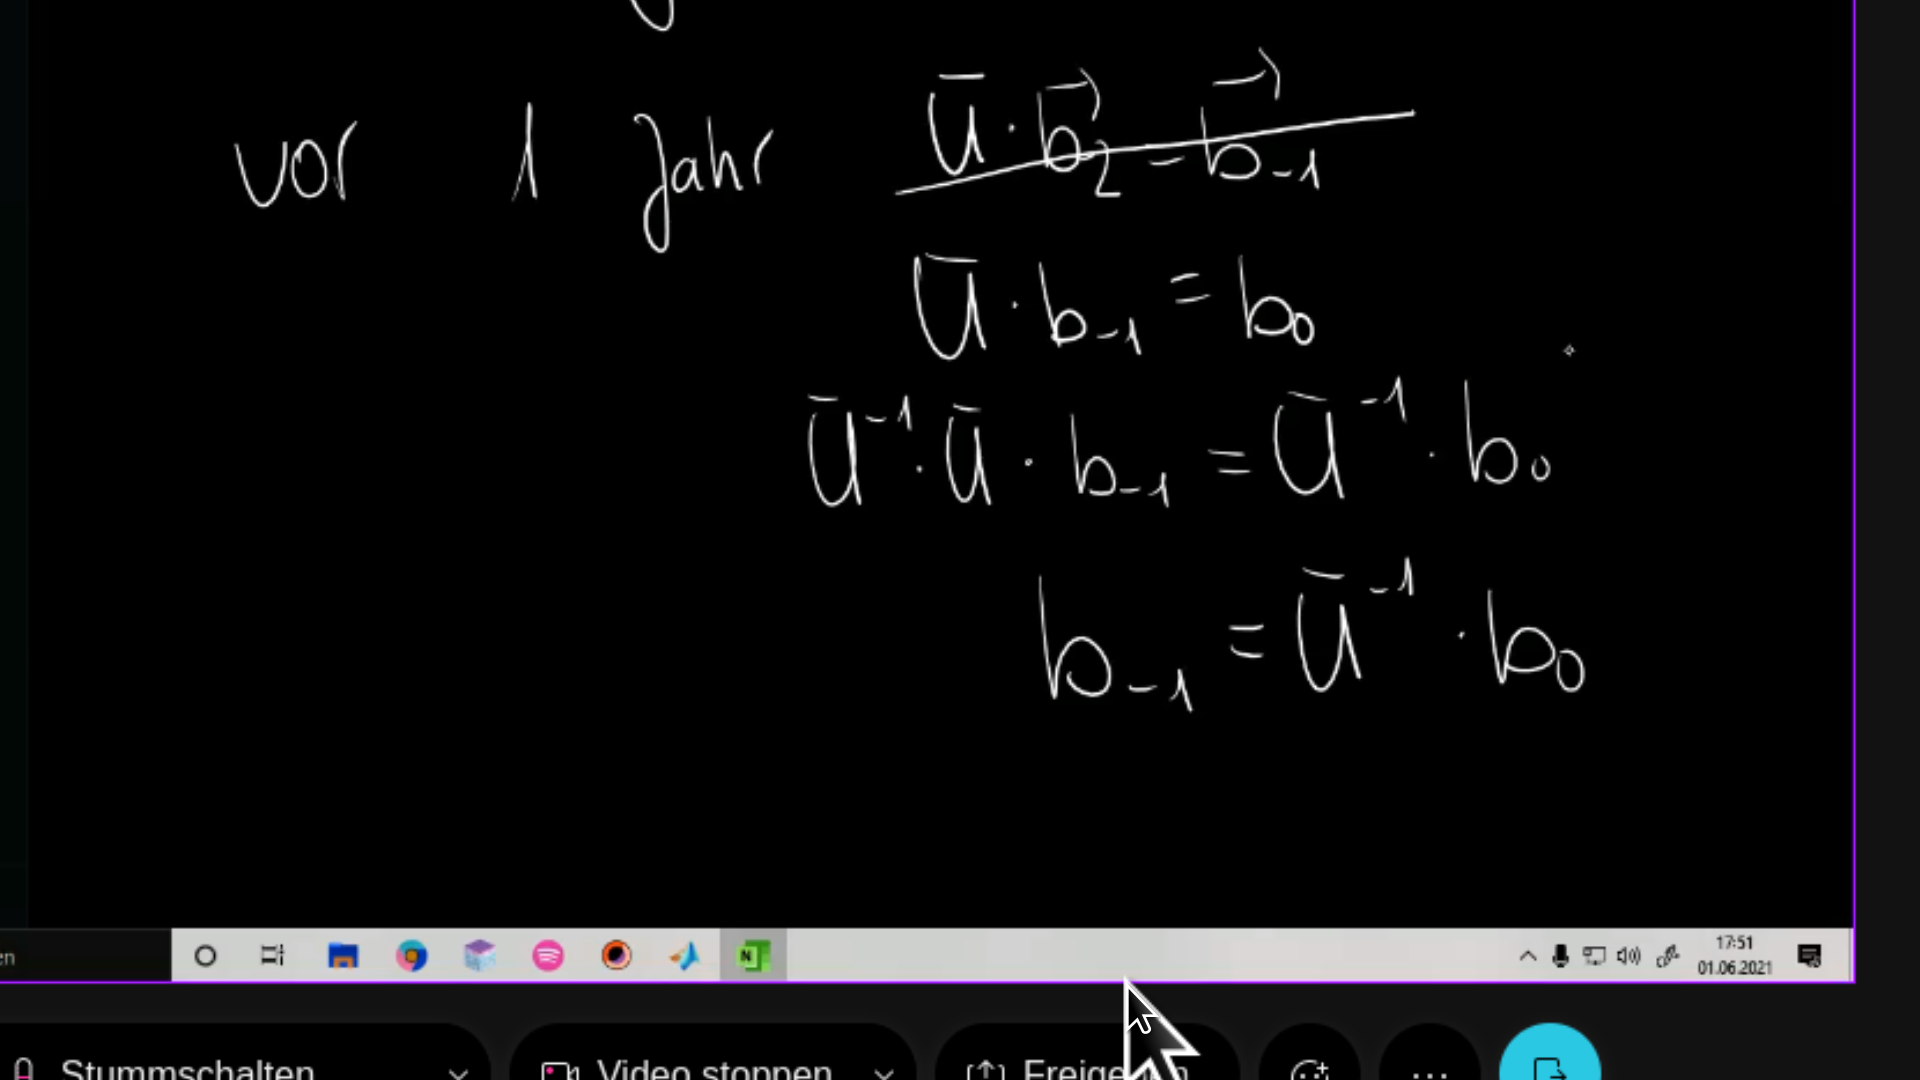 vor 1 Jahr Ū · b⃗₂ = b⃗₋₁
Ū · b₋₁ = b₀
Ū⁻¹ · Ū · b₋₁ = Ū⁻¹ · b₀
b₋₁ = Ū⁻¹ · b₀
en
N
17:51
01.06.2021
Stummschalten Video stoppen